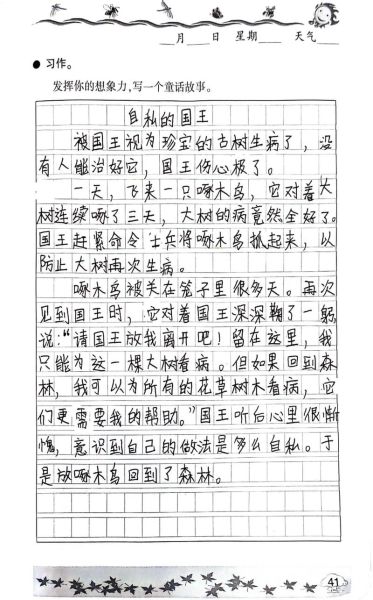 ___月___日 星期___ 天气___
● 习作。
发挥你的想象力,写一个童话故事。
自私的国王
被国王视为珍宝的古树生病了，没
有人能治好它，国王伤心极了。
一天，飞来一只啄木鸟，它对着大
树连续啄了三天，大树的病竟然全好了。
国王赶紧命令士兵将啄木鸟抓起来，以
防止大树再次生病。
啄木鸟被关在笼子里很多天。再次
见到国王时，它对着国王深深鞠了一躬
说：“请国王放我离开吧！留在这里，我
只能为这一棵大树看病。但如果回到森
林，我可以为所有的花草树木看病，它
们更需要我的帮助。”国王听后心里很惭
愧，意识到自己的做法是多么自私。于
是放啄木鸟回到了森林。
41